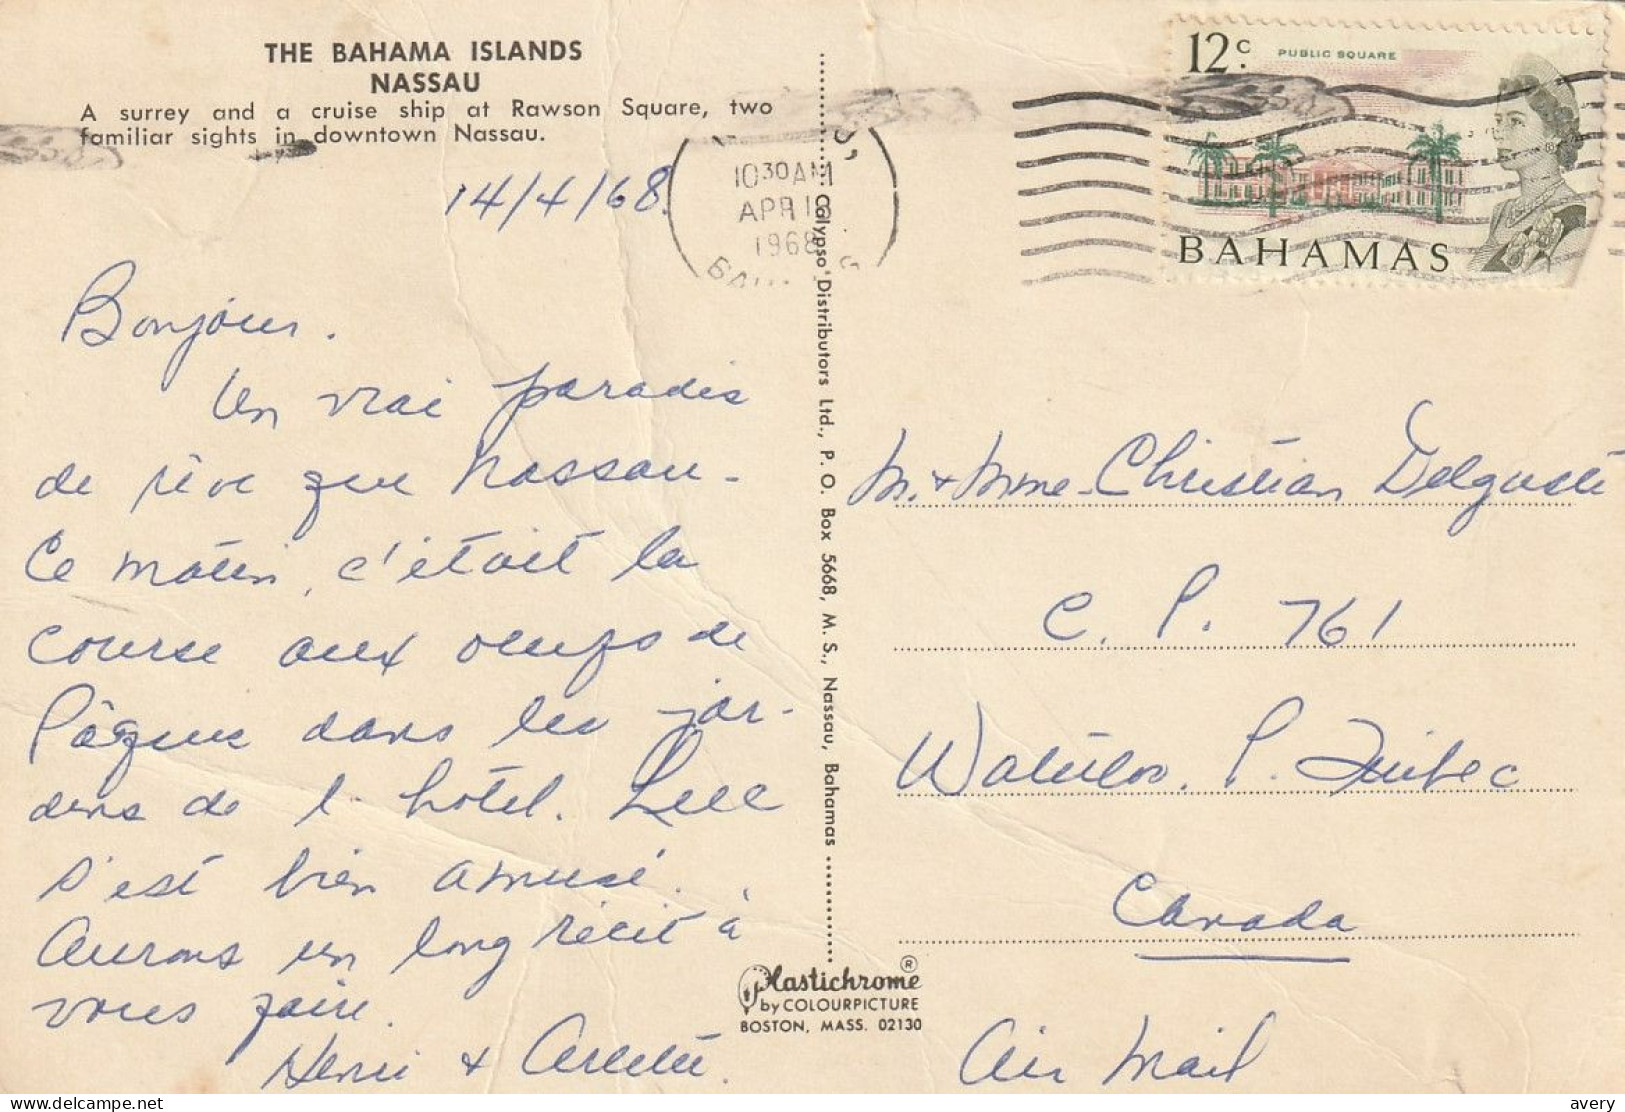 THE BAHAMA ISLANDS
NASSAU
A surrey and a cruise ship at Rawson Square, two
familiar sights in downtown Nassau.
14/4/68.
10 30 AM
APR 18
1968
12c.
PUBLIC SQUARE
BAHAMAS
Bonjour.
Un vrai paradis
de rêve que Nassau.
Ce matin, c'était la
course aux oeufs de
Pâques dans les jar-
dins de l'hôtel. Luc
s'est bien amusé.
Aurons un long récit à
vous faire.
Henri & Arlette.
Calypso Distributors Ltd., P. O. Box 5668, M. S., Nassau, Bahamas
Plastichrome ®
by COLOURPICTURE
BOSTON, MASS. 02130
M. & Mme. Christian
C. P. 761
Waterloo, P. Québec
Canada
Air Mail
delcampe.net
avery